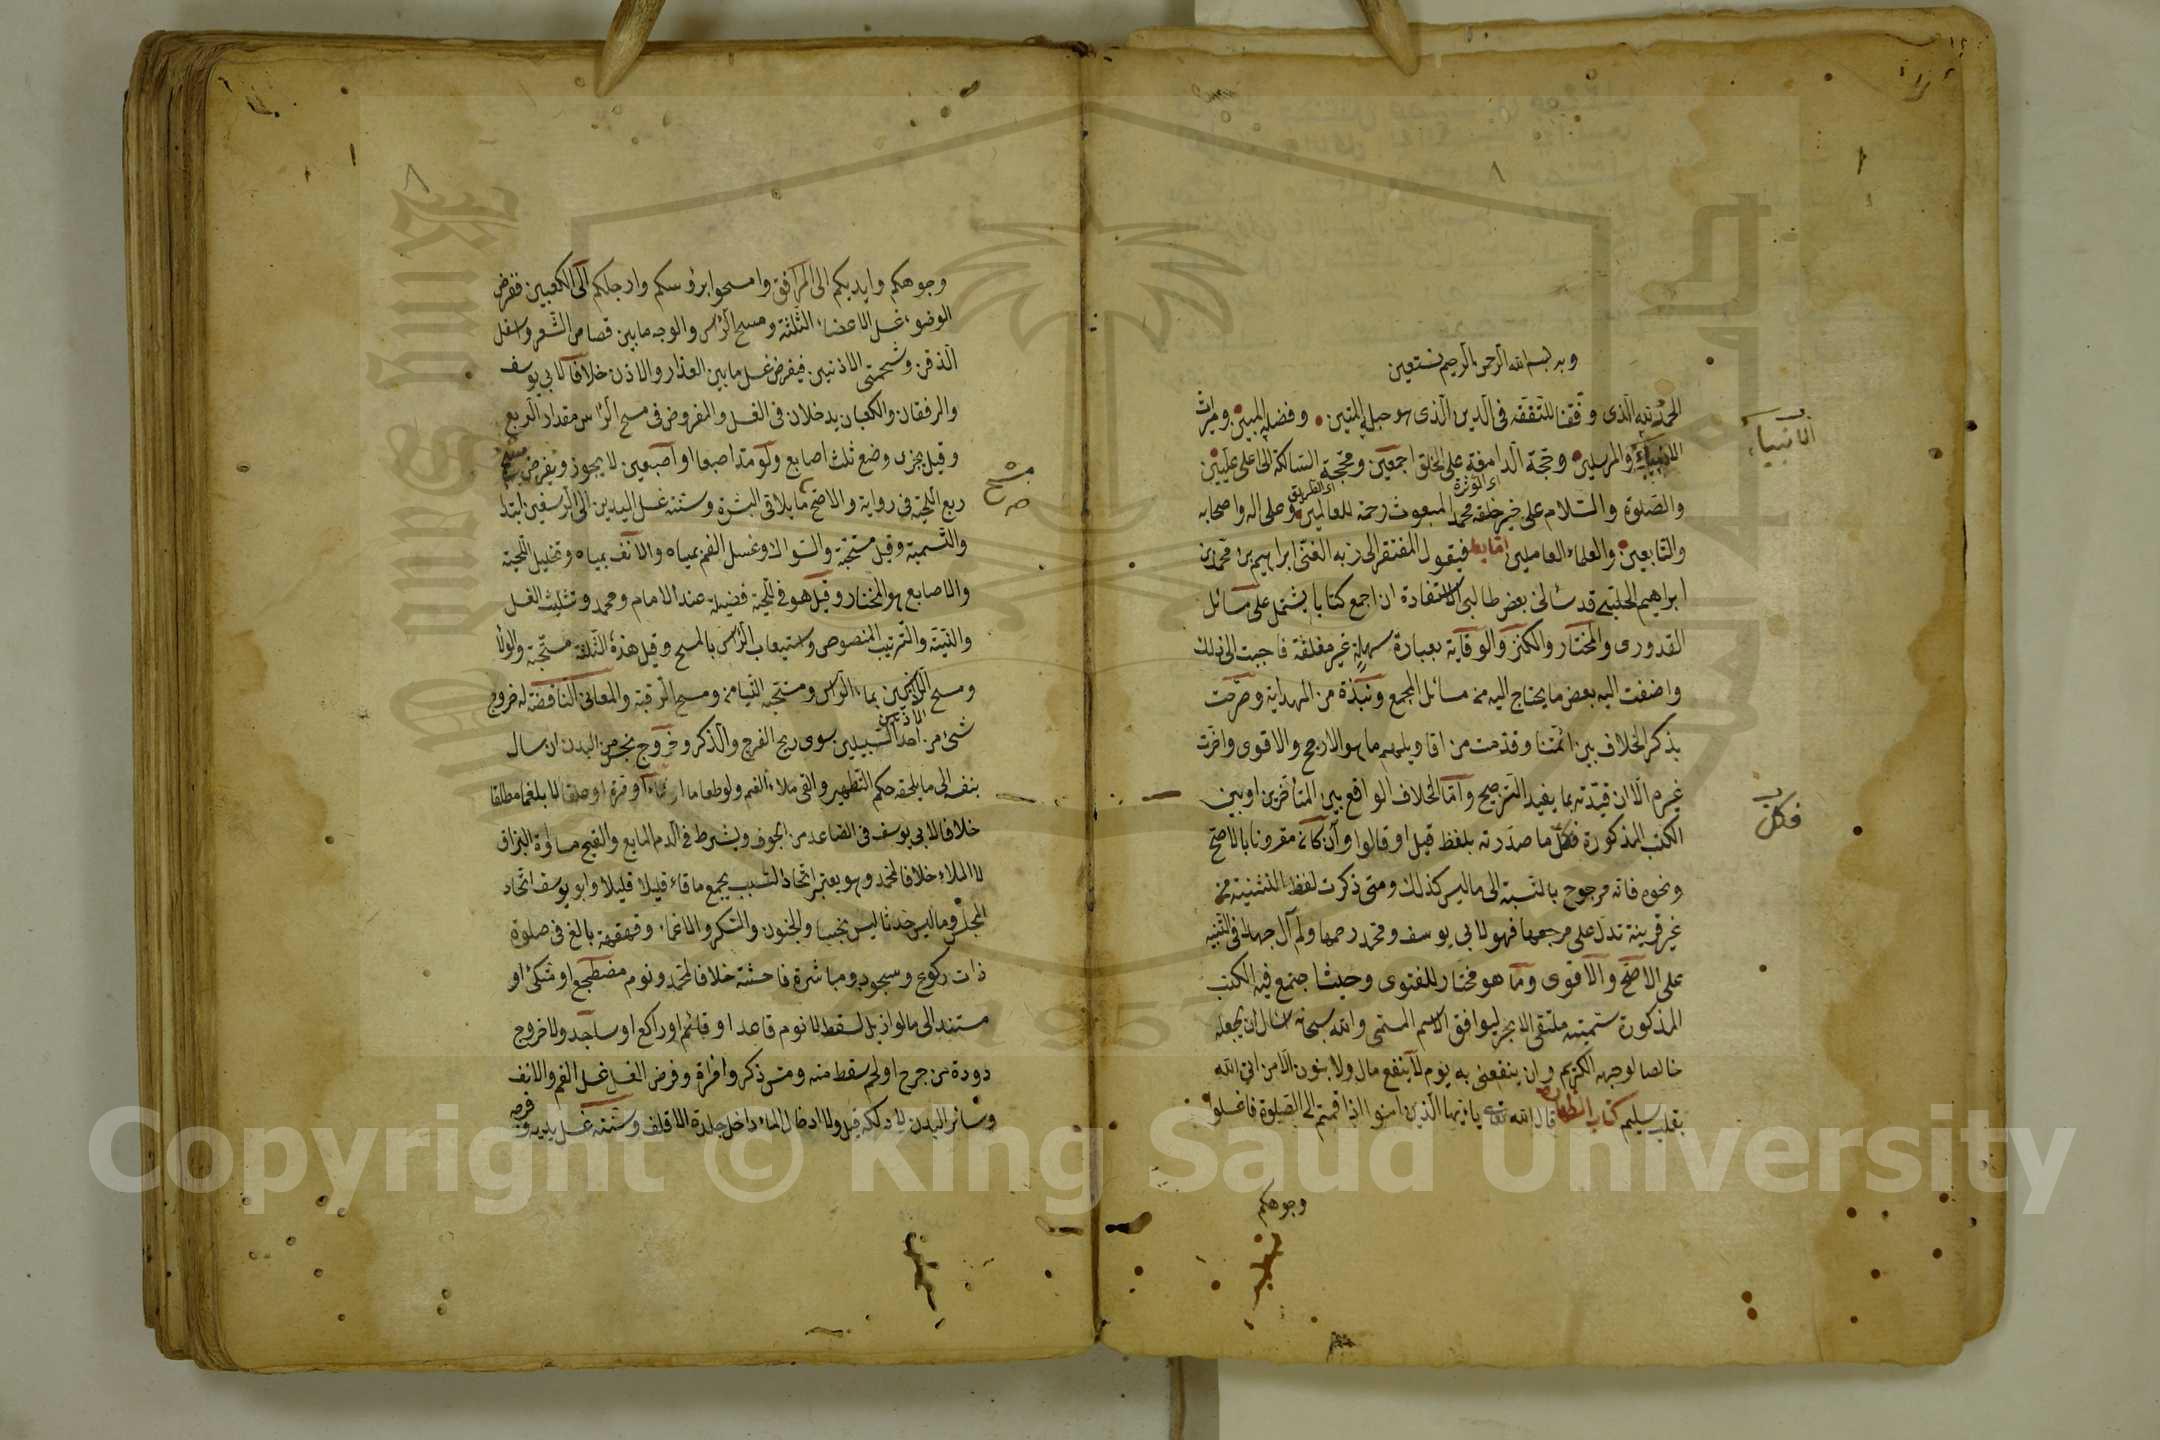 وبه بسم الله الرحمن الرحيم نستعين
الحمد لله الذي وفقنا للتفقه في الدين الذي هو حبله المتين وفضله المبين وميراث
الانبياء والمرسلين وحجته الدامغة على الخلق اجمعين ومحجته السالكة الى اعلى عليين
والصلوة والسلام على خير خلقه محمد المبعوث رحمة للعالمين وعلى اله واصحابه
والتابعين والعلماء العاملين اما بعد فيقول المفتقر الى ربه الغني ابراهيم بن محمد بن
ابراهيم الحلبي قد سألني بعض طالبي الاستفادة ان اجمع كتابا يشتمل على مسائل
القدوري والمختار والكنز والوقاية بعبارة سهلة غير مغلقة فاجبت الى ذلك
واضفت اليه بعض ما يحتاج اليه من مسائل المجمع ونبذة من الهداية وصرحت
بذكر الخلاف بين ائمتنا وقدمت من اقاويلهم ما هو الارجح والاقوى واخرت
غيره الا ان قيدته بما يفيد الترجيح واما الخلاف الواقع بين المتأخرين او بين
الكتب المذكورة فكل ما صدرته بلفظ قيل او قالوا وان كان مقرونا بالاصح
ونحوه فانه مرجوح بالنسبة الى ما ليس كذلك ومتى ذكرت لفظ التثنية من
غير قرينة تدل على مرجعها فهو لابي يوسف ومحمد رحمها ولم آل جهدا في التنبيه
على الاصح والاقوى وما هو مختار للفتوى وحيث اجتمع فيه الكتب
المذكورة سميته ملتقى الابحر ليوافق الاسم المسمى والله سبحانه اسال ان يجعله
خالصا لوجهه الكريم وان ينفعني به يوم لا ينفع مال ولا بنون الا من اتى الله
بقلب سليم كتاب الطهارة قال الله تعالى يا ايها الذين امنوا اذا قمتم الى الصلوة فاغسلوا
وجوهكم
الانبياء
فكل
وجوهكم وايديكم الى المرافق وامسحوا برؤسكم وارجلكم الى الكعبين ففرض
الوضوء غسل الاعضاء الثلثة ومسح الرأس والوجه ما بين قصاص الشعر واسفل
الذقن وشحمتي الاذنين فيفرض غسل ما بين العذار والاذن خلافا لابي يوسف
والمرفقان والكعبان يدخلان في الغسل والمفروض في مسح الرأس مقدار الربع
وقيل يجزى وضع ثلث اصابع ولو مد اصبعا او اصبعين لا يجوز ويفرض مسح
ربع اللحية في رواية والاصح ما يلاقي البشرة وسننه غسل اليدين الى الرسغين ابتداء
والتسمية وقيل مستحبة والسواك وغسل الفم بمياه والانف بمياه وتخليل اللحية
والاصابع هو المختار وقيل هو في اللحية فضيلة عند الامام ومحمد وتثليث الغسل
والنية والترتيب المنصوص واستيعاب الرأس بالمسح وقيل هذه الثلثة مستحبة والولاء
ومسح الاذنين بماء الرأس ومستحبه التيامن ومسح الرقبة والمعاني الناقضة له خروج
شئ من احد السبيلين سوى ريح الفرج والذكر وخروج نجس من البدن ان سال
بنفسه الى ما يلحقه حكم التطهير والقئ ملاء الفم ولو طعاما او ماء او مرة او علقا لا بلغما مطلقا
خلافا لابي يوسف في الصاعد من الجوف ويشترط في الدم المايع والقيح مساواة البزاق
لا الملاء خلافا لمحمد وهو يعتبر اتحاد السبب بجمع ما قاء قليلا قليلا وابو يوسف اتحاد
المجلس وما ليس حدثا ليس نجسا والجنون والسكر والاغماء وقهقهة بالغ في صلوة
ذات ركوع وسجود ومباشرة فاحشة خلافا لمحمد ونوم مضطجع او متكئ او
مستند الى ما لو ازيل لسقط لا نوم قاعد او قائم او راكع او ساجد ولا خروج
دودة من جرح او لحم سقط منه ومس ذكر وامرأة وفرض الغسل غسل الفم والانف
وسائر البدن لا دلكه قيل ولا ادخال الماء داخل جلدة الاقلف وسننه غسل يديه وفرجه
مسح
Copyright © King Saud University
King Saud University
1957